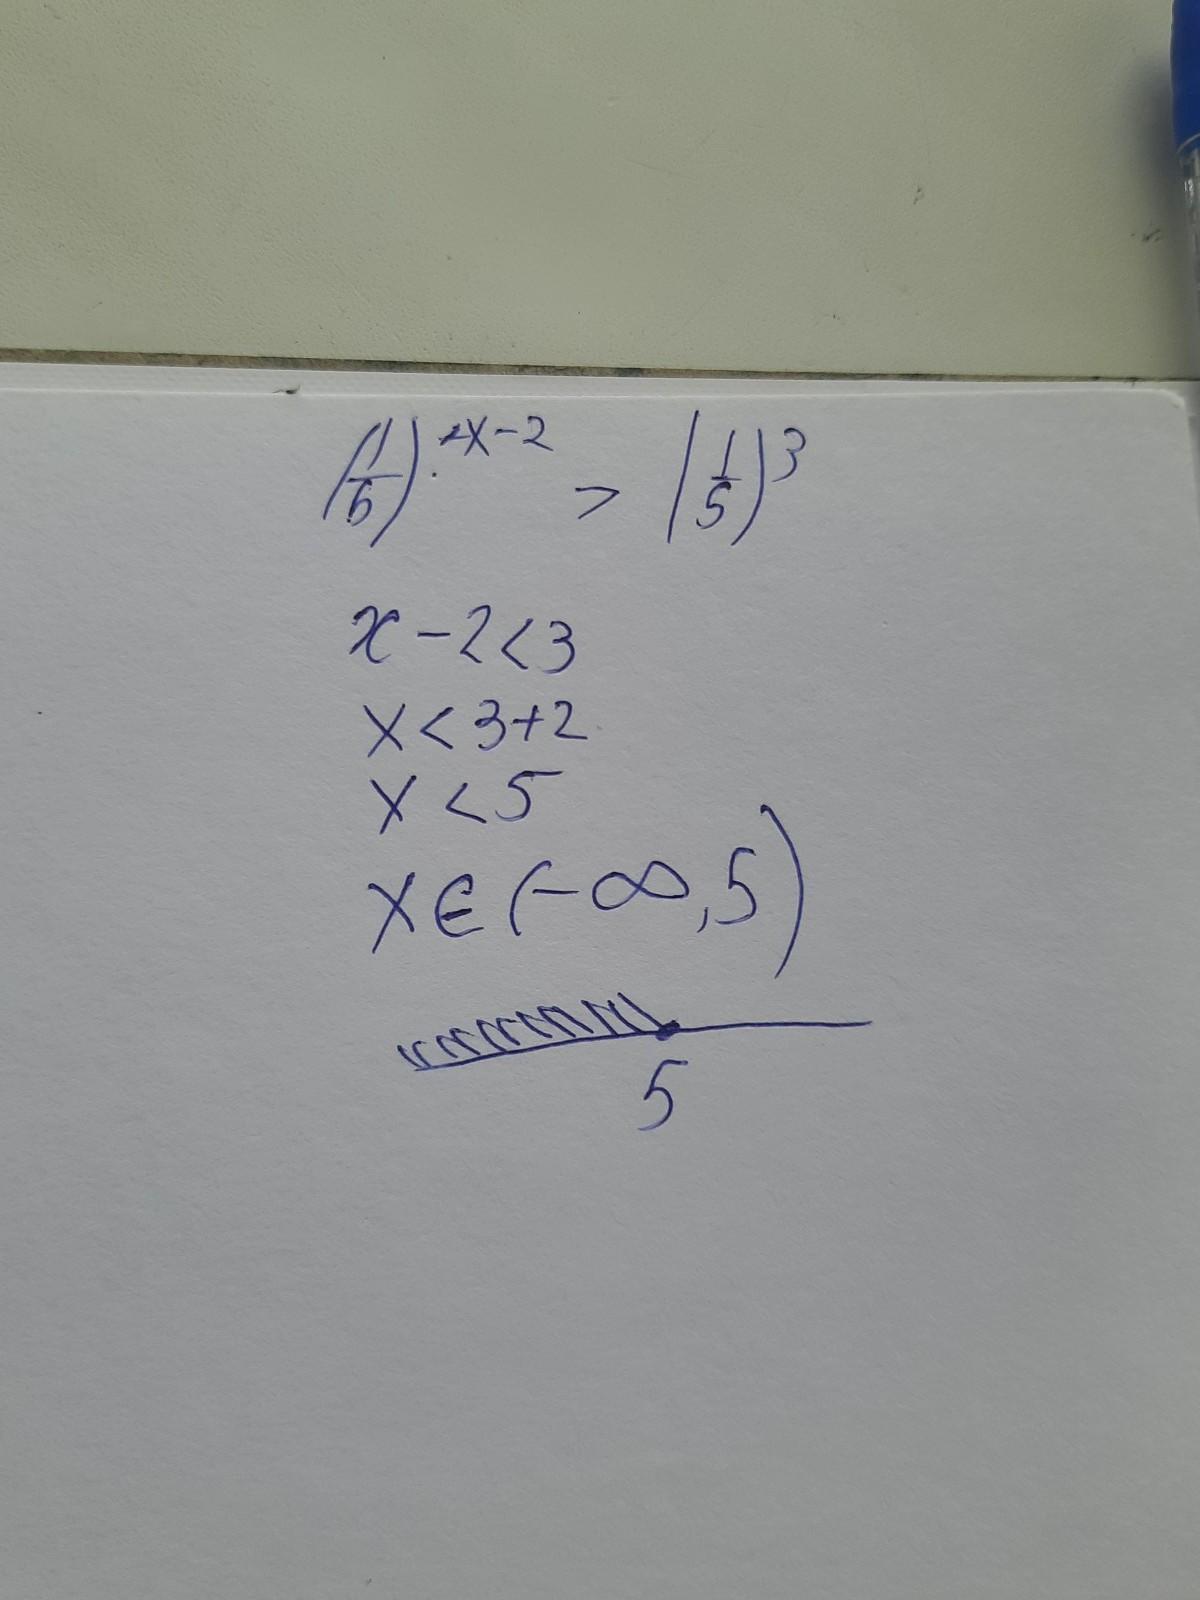 (1/6)^(x-2) > (1/5)^3
x - 2 < 3
x < 3 + 2
x < 5
x ∈ (-∞, 5)
5